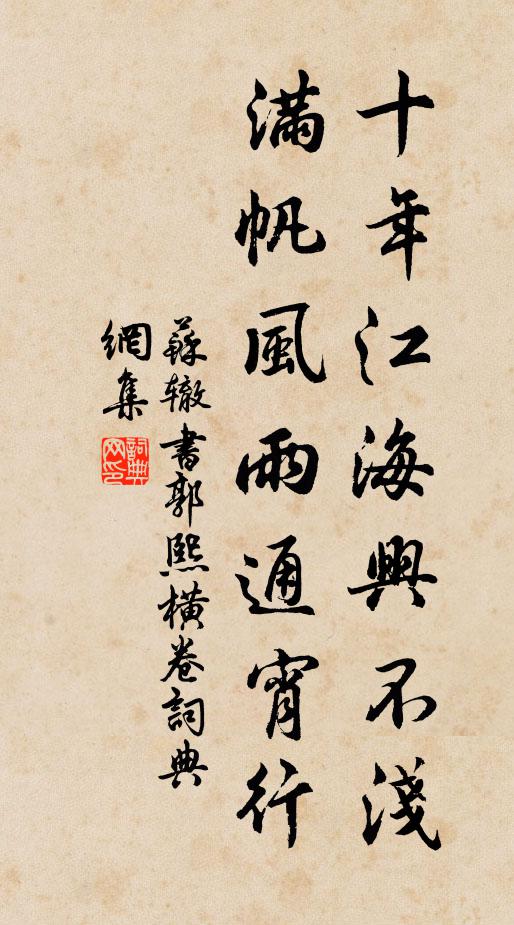 十年江海興不淺
滿帆風雨通宵行
蘇轍書郭熙橫卷詞典
網集
詞典
网印